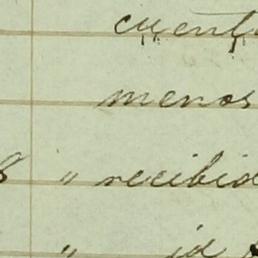 cuent
menos
8 " recibid
" id